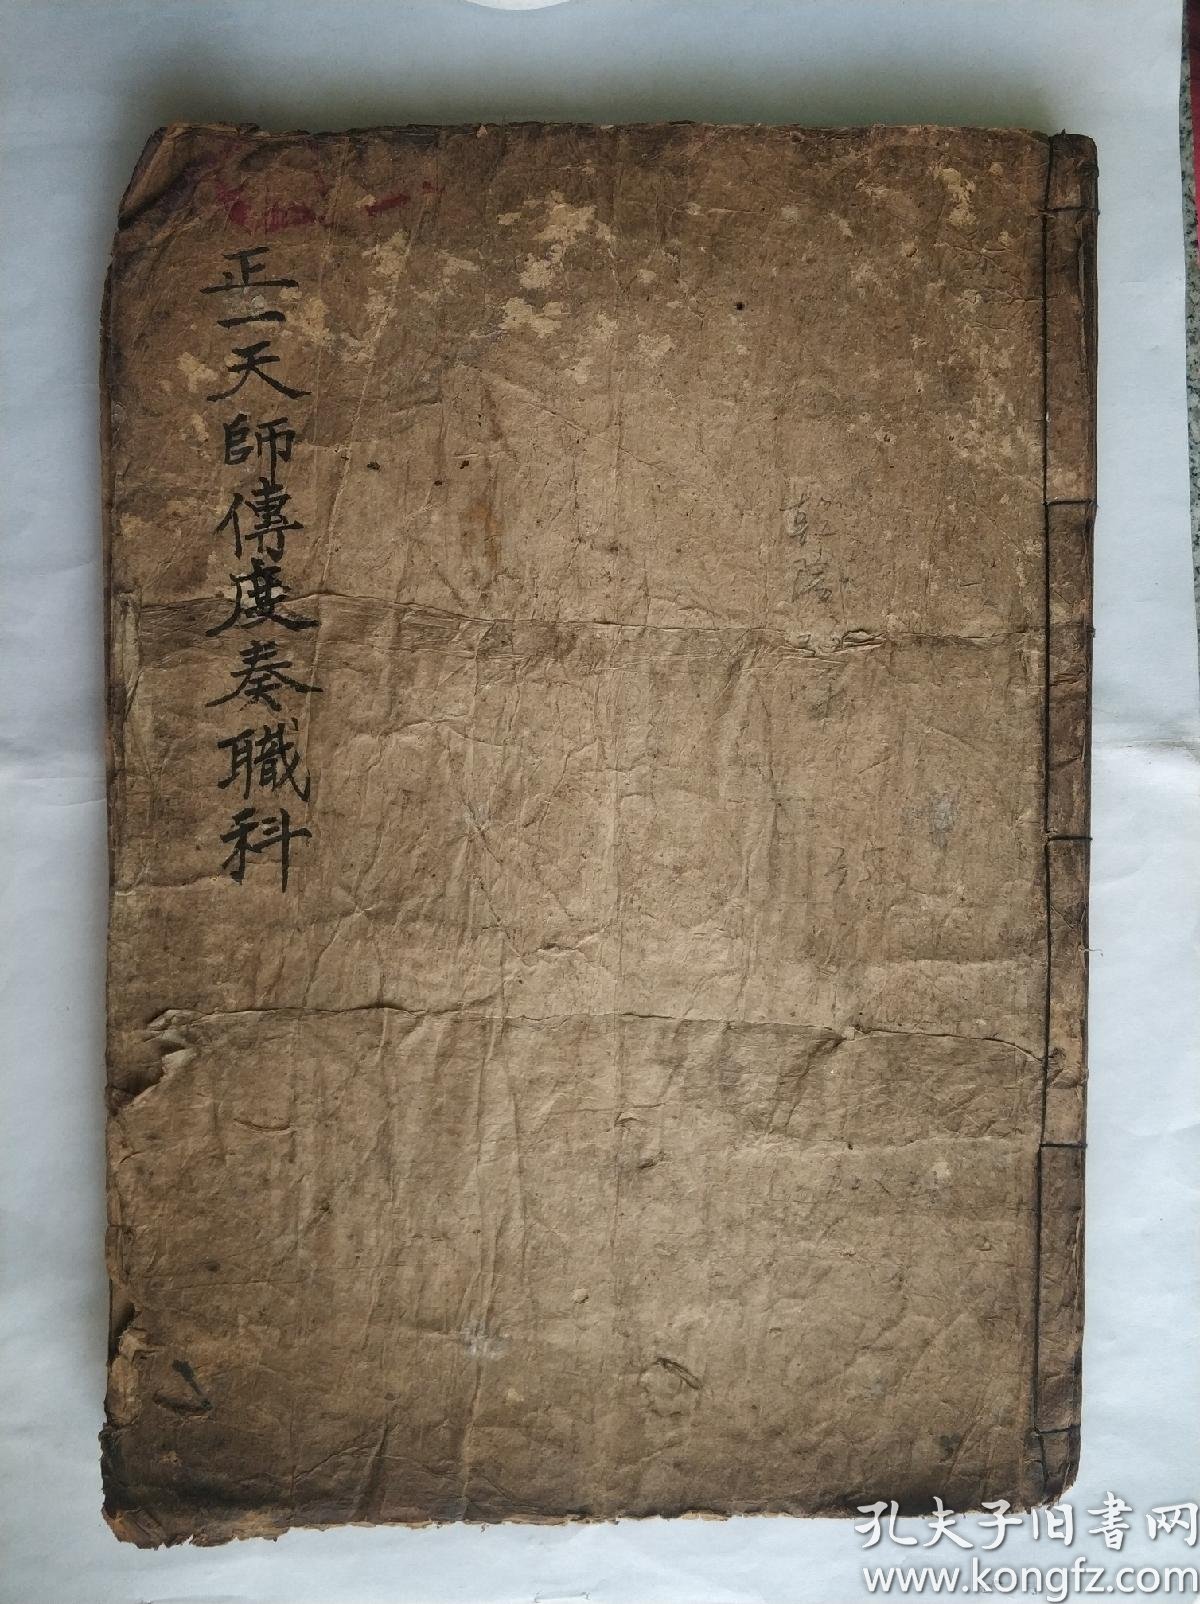 正一天師傳度奏職科
孔夫子旧書网
www.kongfz.com